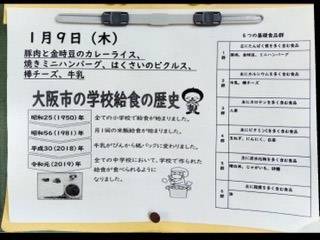 1月9日（木）
豚肉と金時豆のカレーライス、
焼きミニハンバーグ、はくさいのピクルス、
棒チーズ、牛乳
大阪市の学校給食の歴史
昭和25（1950）年
全ての小学校で給食が始まりました。
昭和56（1981）年
月1回の米飯給食が始まりました。
平成30（2018）年
牛乳がびんから紙パックに変わりました。
令和元（2019）年
全ての中学校において、学校で作られた
給食が食べられるように
なりました。
6つの基礎食品群
主にたんぱく質を多く含む食品
1群
豚肉、金時豆、ミニハンバーグ
主にカルシウムを多く含む食品
2群
牛乳、棒チーズ
主にカロテンを多く含む食品
3群
にんじん
主にビタミンCを多く含む食品
4群
主に炭水化物を多く含む食品
5群
主に脂質を多く含む食品
6群
油